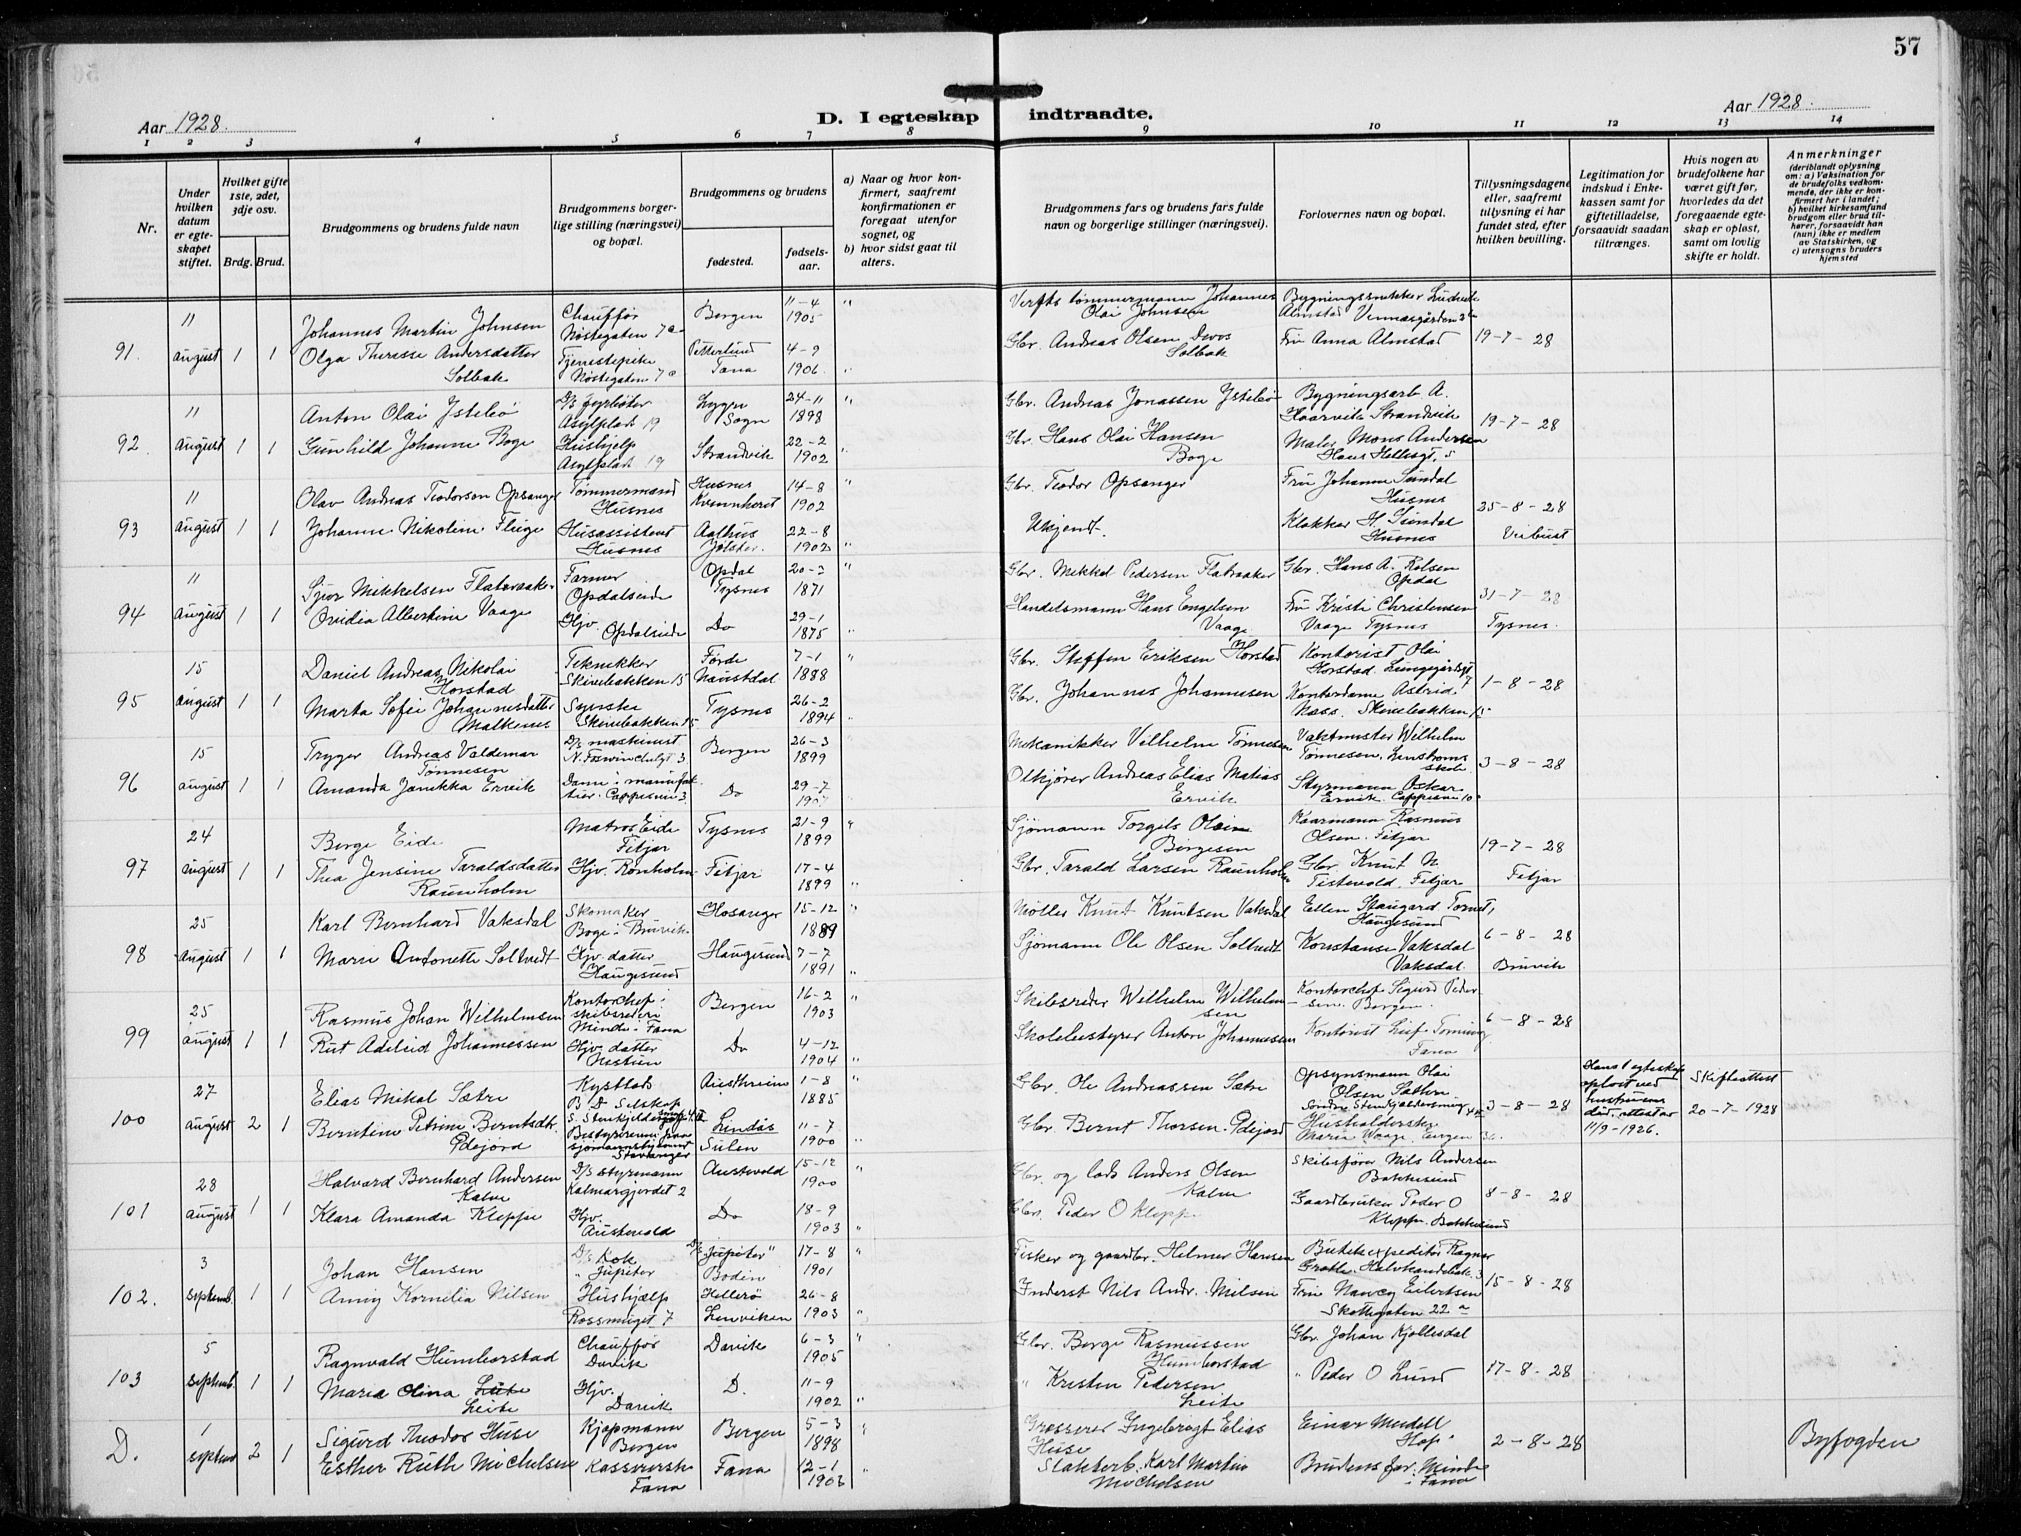 57
Aar 1928.
D. I egteskap
indtraadte.
Aar 1928.
1 2 3 4 5 6 7 8 9 10 11 12 13 14
Nr.
Under hvilken datum er egteskapet stiftet.
Hvilket gifte 1ste, 2det, 3dje osv.
Brdg. Brud.
Brudgommens og brudens fulde navn
Brudgommens borgerlige stilling (næringsvei) og bopæl.
Brudgommens og brudens
fødested.
fødselsaar.
a) Naar og hvor konfirmert, saafremt konfirmationen er foregaat utenfor sognet, og
b) hvor sidst gaat til alters.
Brudgommens fars og brudens fars fulde navn og borgerlige stillinger (næringsvei).
Forlovernes navn og bopæl.
Tillysningsdagene eller, saafremt tillysning ei har fundet sted, efter hvilken bevilling.
Legitimation for indskud i Enkekassen samt for giftetilladelse, forsaavidt saadan tiltrænges.
Hvis nogen av brudefolkene har været gift før, hvorledes da det foregaaende egteskap er opløst, samt om lovlig skifte er holdt.
Anmerkninger
(deriblandt oplysning om: a) Vaksination for de brudefolks vedkommende, der ikke er konfirmert her i landet; b) hvilket kirkesamfund brudgom eller brud tilhører, forsaavidt han (hun) ikke er medlem av Statskirken, og c) utensogns bruders hjemsted
91. 11 august 1 1 Johannes Martin Johnsen Chauffør Nøstegaten 7a Bergen 11-4 1905 " Verfts tømmermann Johannes Olai Johnsen Bygningssnekker Ludvik Almstad
Olga Theresse Andersdatter Solbak Tjenestepike Nøstegaten 7a Fana 4-9 1906 " Gbr. Andreas Olsen Solbak Fru Anna Almstad 19-7-28
92. 11 august 1 1 Anton Olai Ystebø D/S fyrbøter Asylplads 19 Sogn 24-11 1898 " Gbr. Andreas Jonassen Ystebø Bygningsarb A. Haarvik Strandvik 19-7-28
Gunhild Johanne Boge Hushjelp Asylplads 19 Strandvik 22-2 1902 Gbr. Hans Olai Hansen Boge Maler Mons Andersen
93 11 august 1 1 Olav Andreas Teodorson Opsanger Tømmermand Husnes Husnes Kvinnheret 14-8 1902 " Gbr. Teodor Opsanger Fru Johanne Sundal Husnes 25-8-28
Johanne Nikoline Fluge Husassistent Husnes Aalhus Jølster. 22-8 1902 " Ukjendt. Klokker H. Sundal Husnes
94 11 august 1 1 Sjur Mikkelsen Flatraaker Farmer Opdalseide Opdal Tysnes 20-3 1871 " Gbr. Mikkel Pedersen Flatraaker Gbr. Hans A. Rolsen Opdal 31-7-28
Ovidia Albertine Vaage Hjv. Opdalseide Do 29-1 1875 " Handelsmann Hans Engelsen Vaage Fru Kristi Christensen Vaage Tysnes Tysnes.
95 15 august 1 1 Daniel Andreas Nikolai Horstad Tekniker Skivebakken 15 Førde Naustdal 7-1 1888 " Gbr. Steffen Eriksen Horstad Kontorist Olai Horstad. Lungegårdsgt 1-8-28
Marta Sofie Johannesdatter Malkenes Syerske Skivebakken 15 Tysnes 26-2 1894 " Gbr. Johannes Johannesen Kontordame Astrid Næss. Skivebakken 15
96 15 august 1 1 Trygve Andreas Valdemar Tønnesen D/S maskinist Bergen 26-3 1899 Mekanikker Vilhelm Tønnesen Vaktmester Wilhelm Tønnesen, 3-8-28
Amanda Janikka Ervik Do 29-7 Oljekjører Andreas Elias Matias Ervik Styrmann Oskar Ervik.
97 24 august 1 1 Berge Eide Matros Eide Fitjar Tysnes 21-9 1899 " Sjømann Torgils Olai Bergesen Kaarmann Rasmus Olsen. Fitjar 19-7-28
Thea Jensine Taraldsdatter Raunholm Hjv. Rønholm Fitjar 17-4 1899 " Gbr. Tarald Larsen Raunholm Gbr Knut N. Tistevold. Fitjar Fitjar
98 25 august 1 1 Karl Bernhard Vaksdal Skomaker Boge i Bruvik Hosanger 15-12 1889 " Møller Knut Knutsen Vaksdal Ellen Haugesund 6-8-28
Marie Antonette Soltvedt Hjv. datter Haugesund Haugesund 7-7 1891 " Sjømann Ole Olsen Soltvedt Konstanse Vaksdal Vaksdal. Bruvik
99 25 august 1 1 Rasmus Johan Wilhelmsen Kontorchef i skibsrederi Minde i Fana Bergen 16-2 1903 " Skibsreder Wilhelm Wilhelmsen Kontorchef Sigurd Pedersen. Bergen. 6-8-28
Rut Adeleid Johannessen Hjv. datter Nestun Do 4-12 1904 " Skolebestyrer Anton Johannessen Kontorist Leif Fana
100 27 august 2 1 Elias Mikal Sætre Kystlods Austrheim 1-8 1885 " Gbr. Ole Andreassen Sætre Opsynsmann Olai Olsen 3-8-28 Hans 1 egteskap opløst ved hustruens død, attest av 11/9-1926. Skifteattest 20-7-1928
Berntine Petrine Berntsdtr. Lindås Sulen 11-7 1900 " Gbr. Bernt Thorsen Husholderske Maria Waage
101 28 august 1 1 Halvard Bernhard Andersen Kalve D/S styrmann Kalmargjerdet 2 Austevold 15-12 1900 " Gbr. og lods Anders Olsen Kalve Skibsfører Nils Andersen Bakkesund 8-8-28
Klara Amanda Kleppe Hjv. Austevold Do 18-9 1903 " Gbr. Peder O Klepp Gaardbruker Peder O Kleppe. Bakkesund
102. 3 septemb. 1 1 Johan Hansen D/S Kok "Jupiter D/S "Jupiter" Bodin 17-8 1901 " Fisker og gaardbr. Helmer Hansen Butikexpeditør Ragnar 15-8-28
Anny Kornelia Nilsen Hushjælp Rossmuget 7 Hellerø Lenviken 26-8 1903 " Inderst Nils Andr. Nilsen Fru Nancy Eilertsen Skottegaten 22a
103 5 septemb. 1 1 Ragnvald Humborstad Chauffør Davik Davik 6-3 1905 " Gbr. Berge Rasmussen Humborstad Gbr. Johan Kjøllesdal 17-8-28
Maria Olina Leite Hjv. Davik D. 11-9 1902 " " Kristen Pedersen Leite " Peder O Lund
D. 1 septemb 2 1 Sigurd Theodor Huse Kjøpmann Bergen Bergen 5-3 1898 " Grosserer Ingebrigt Elias Huse Einar Meidell Hop 2-8-28 Byfogden
Esther Ruth Michelsen Kassererske Fana Fana 12-1 1906 " Slakterb. Karl Martin Michelsen Brudens far. Minde i Fana